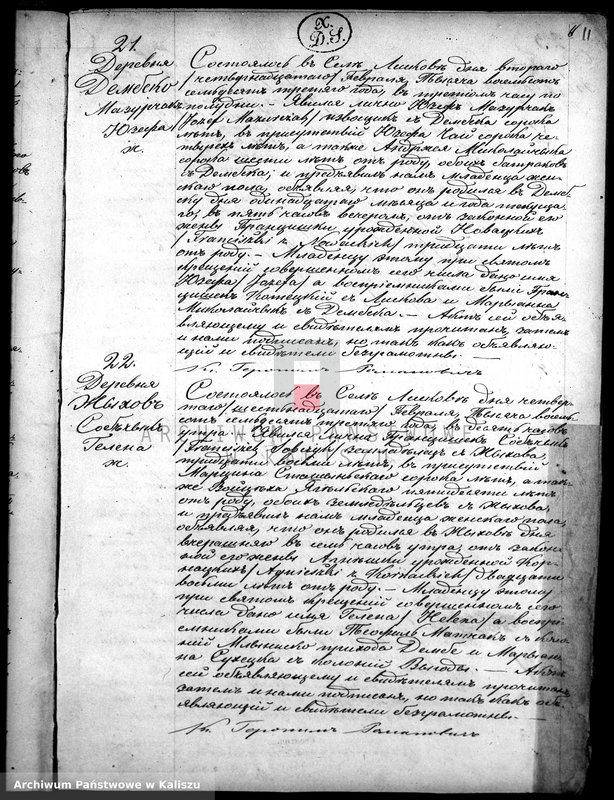 X.
D.S.
11
21.
Деревня
Дембско
Мазурчакъ
Юзефа
ж.
Состоялось въ Селѣ Лисковѣ дня втораго
/четырнадцатаго/ Февраля, тысяча восемьсотъ
семьдесятъ третьяго года, въ третьемъ часу по
полудни. — Явился лично Юзефъ Мазурчакъ
/Józef / изъ Дембска сорока
лѣтъ, въ присутствіи Юзефа Чай сорока че-
тырехъ лѣтъ, а также Андржея Миколайчика
сорока шести лѣтъ отъ роду, обоихъ батраковъ
съ Дембска; и предъявилъ намъ младенца жен-
скаго пола, объявляя, что онъ родился въ Демб-
ску дня одинадцатаго мѣсяца и года текуща-
го, въ пять часовъ вечеромъ, отъ законной его
жены Францишки урожденной Новацкихъ
/Franciszki z Nowackich/ тридцати лѣтъ
отъ роду. — Младенцу этому при святомъ
крещеніи совершенномъ сего числа дано имя
Юзефа /Józefa/ а воспріемниками были Фран-
цишекъ съ Лискова и Марыанна
Миколайчикъ съ Дембска. — Актъ сей объя-
вляющему и свидѣтелямъ прочитанъ, затемъ
и нами подписанъ, но такъ какъ объявляю-
щій и свидѣтели безграмотны. —
Кс.
22.
Деревня
Жыховъ
Собчакъ
Гелена
ж.
Состоялось въ Селѣ Лисковѣ дня четвер-
таго /шестнадцатаго/ Февраля, тысяча восемь-
сотъ семьдесятъ третьяго года, въ десять часовъ
утра. — Явился лично Францишекъ
/Franciszek / съ Жыхова,
тридцати восьми лѣтъ, въ присутствіи
Марцина сорока лѣтъ, а так-
же Войцѣха пятидесяти лѣтъ
отъ роду, обоихъ земледѣльцевъ съ Жыхова,
и предъявилъ намъ младенца женскаго пола,
объявляя, что онъ родился въ Жыховѣ дня
вчерашняго въ семь часовъ утра, отъ закон-
ной его жены Агнешки урожденной
/Agnieszki z / двадцати
восьми лѣтъ отъ роду. — Младенцу этому
при святомъ крещеніи совершенномъ сего
числа дано имя Гелена /Helena/ а воспрі-
емниками были Теофиль съ
прихода Дембе и Марыан-
на Сухецка съ колоніи Выгоды. — Актъ
сей объявляющему и свидѣтелямъ прочитанъ,
затемъ и нами подписанъ, но такъ какъ объ-
являющій и свидѣтели безграмотны. —
Кс.
ARCHIWUM PAŃSTWOWE
W KALISZU
Archiwum Państwowe w Kaliszu